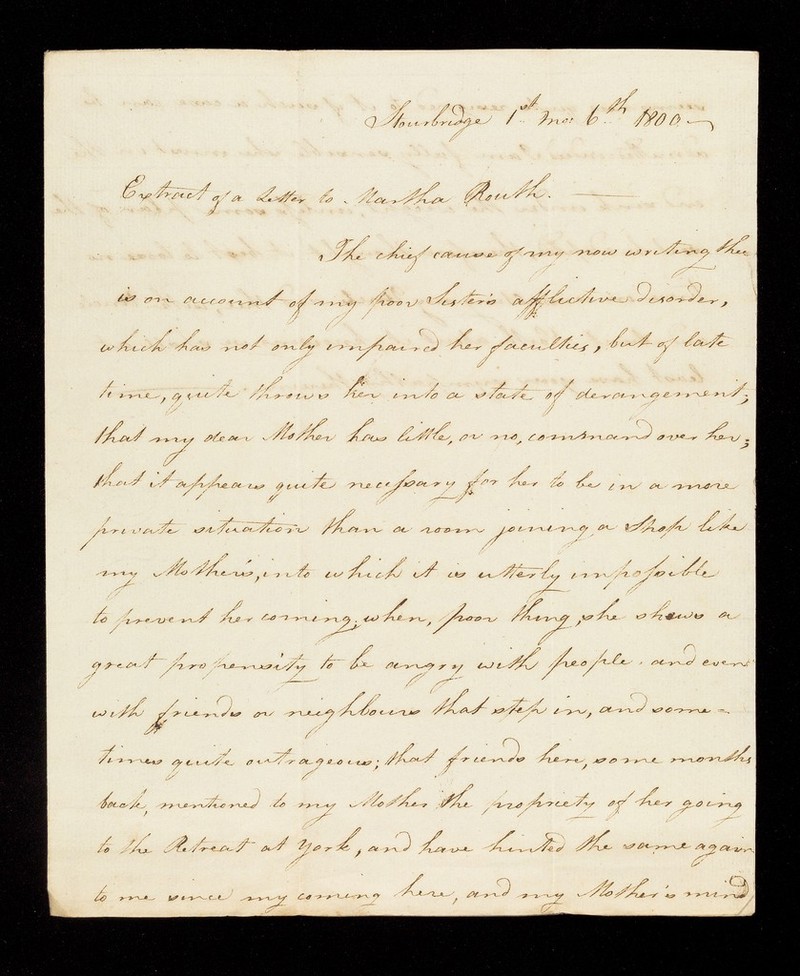 Stourbridge 1st Mo: 6th 1800
Extract of a Letter to Martha Routh.
The chief cause of my now writing thee
is on account of my poor Sister's afflictive disorder,
which has not only impaired her faculties, but of late
time, quite throws her into a state of derangement;
that my dear Mother has little, or no, command over her;
that it appears quite necessary for her to be in a more
private situation than a room joining a Shop like
my Mother's, into which it is utterly impossible
to prevent her coming, when, poor thing, she shews a
great propensity to be angry with people. and even
with friends or neighbours that step in, and some=
times quite outrageous; that friends here, some months
back, mentioned to my Mother the propriety of her going
to the Retreat at York, and have hinted the same again
to me since my coming here, and my Mother's mind